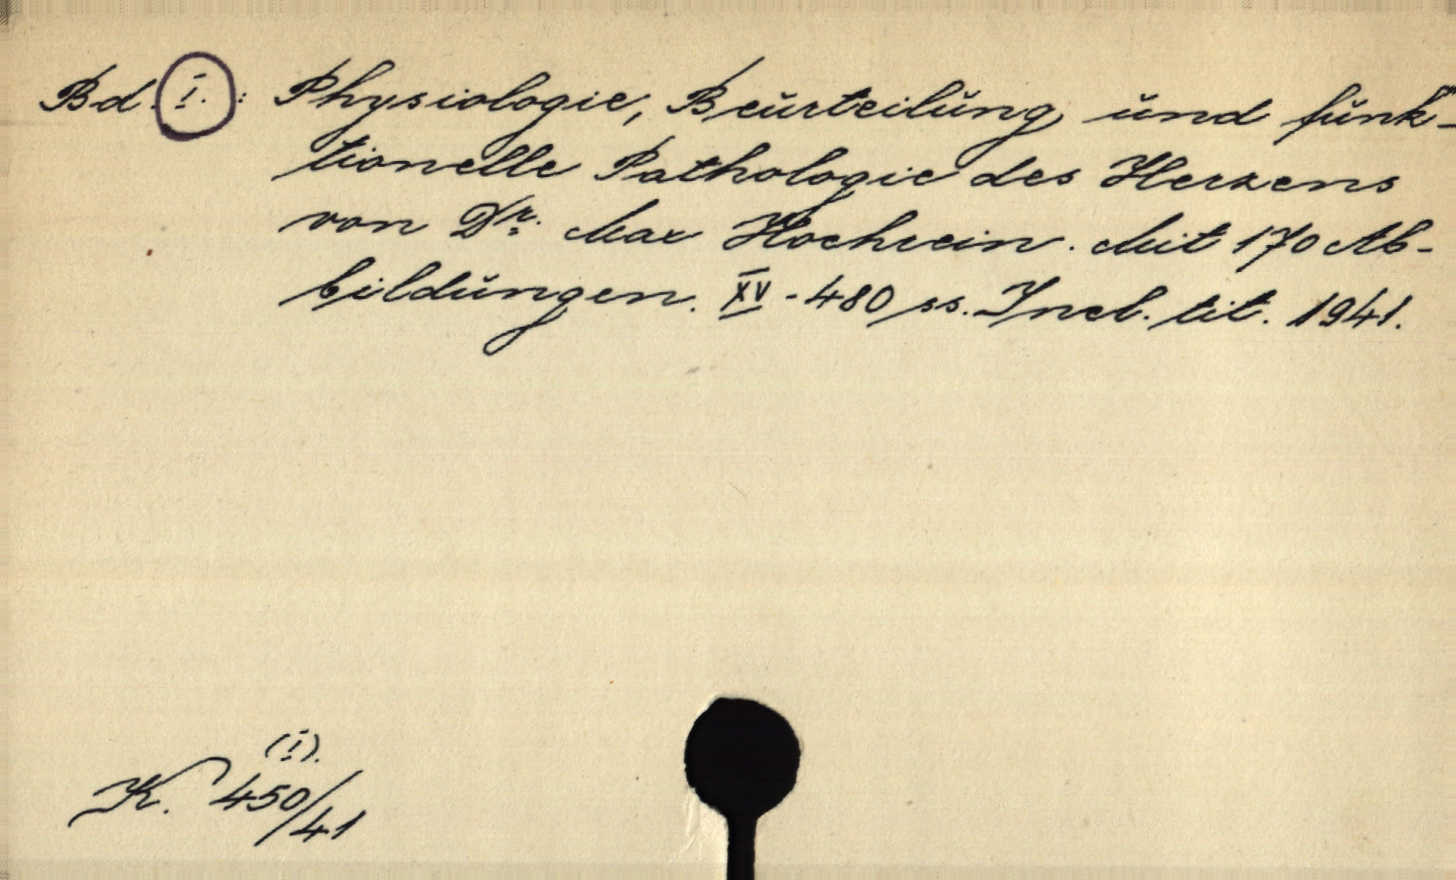 Bd. I. : Physiologie, Beŭrteilŭng ŭnd fŭnk-
tionelle Pathologie des Herzens
von Dr. Max Hochrein. Mit 170 Ab-
bildŭngen. XV - 480 ss. Incl. tit. 1941.
(I).
K. 450/41